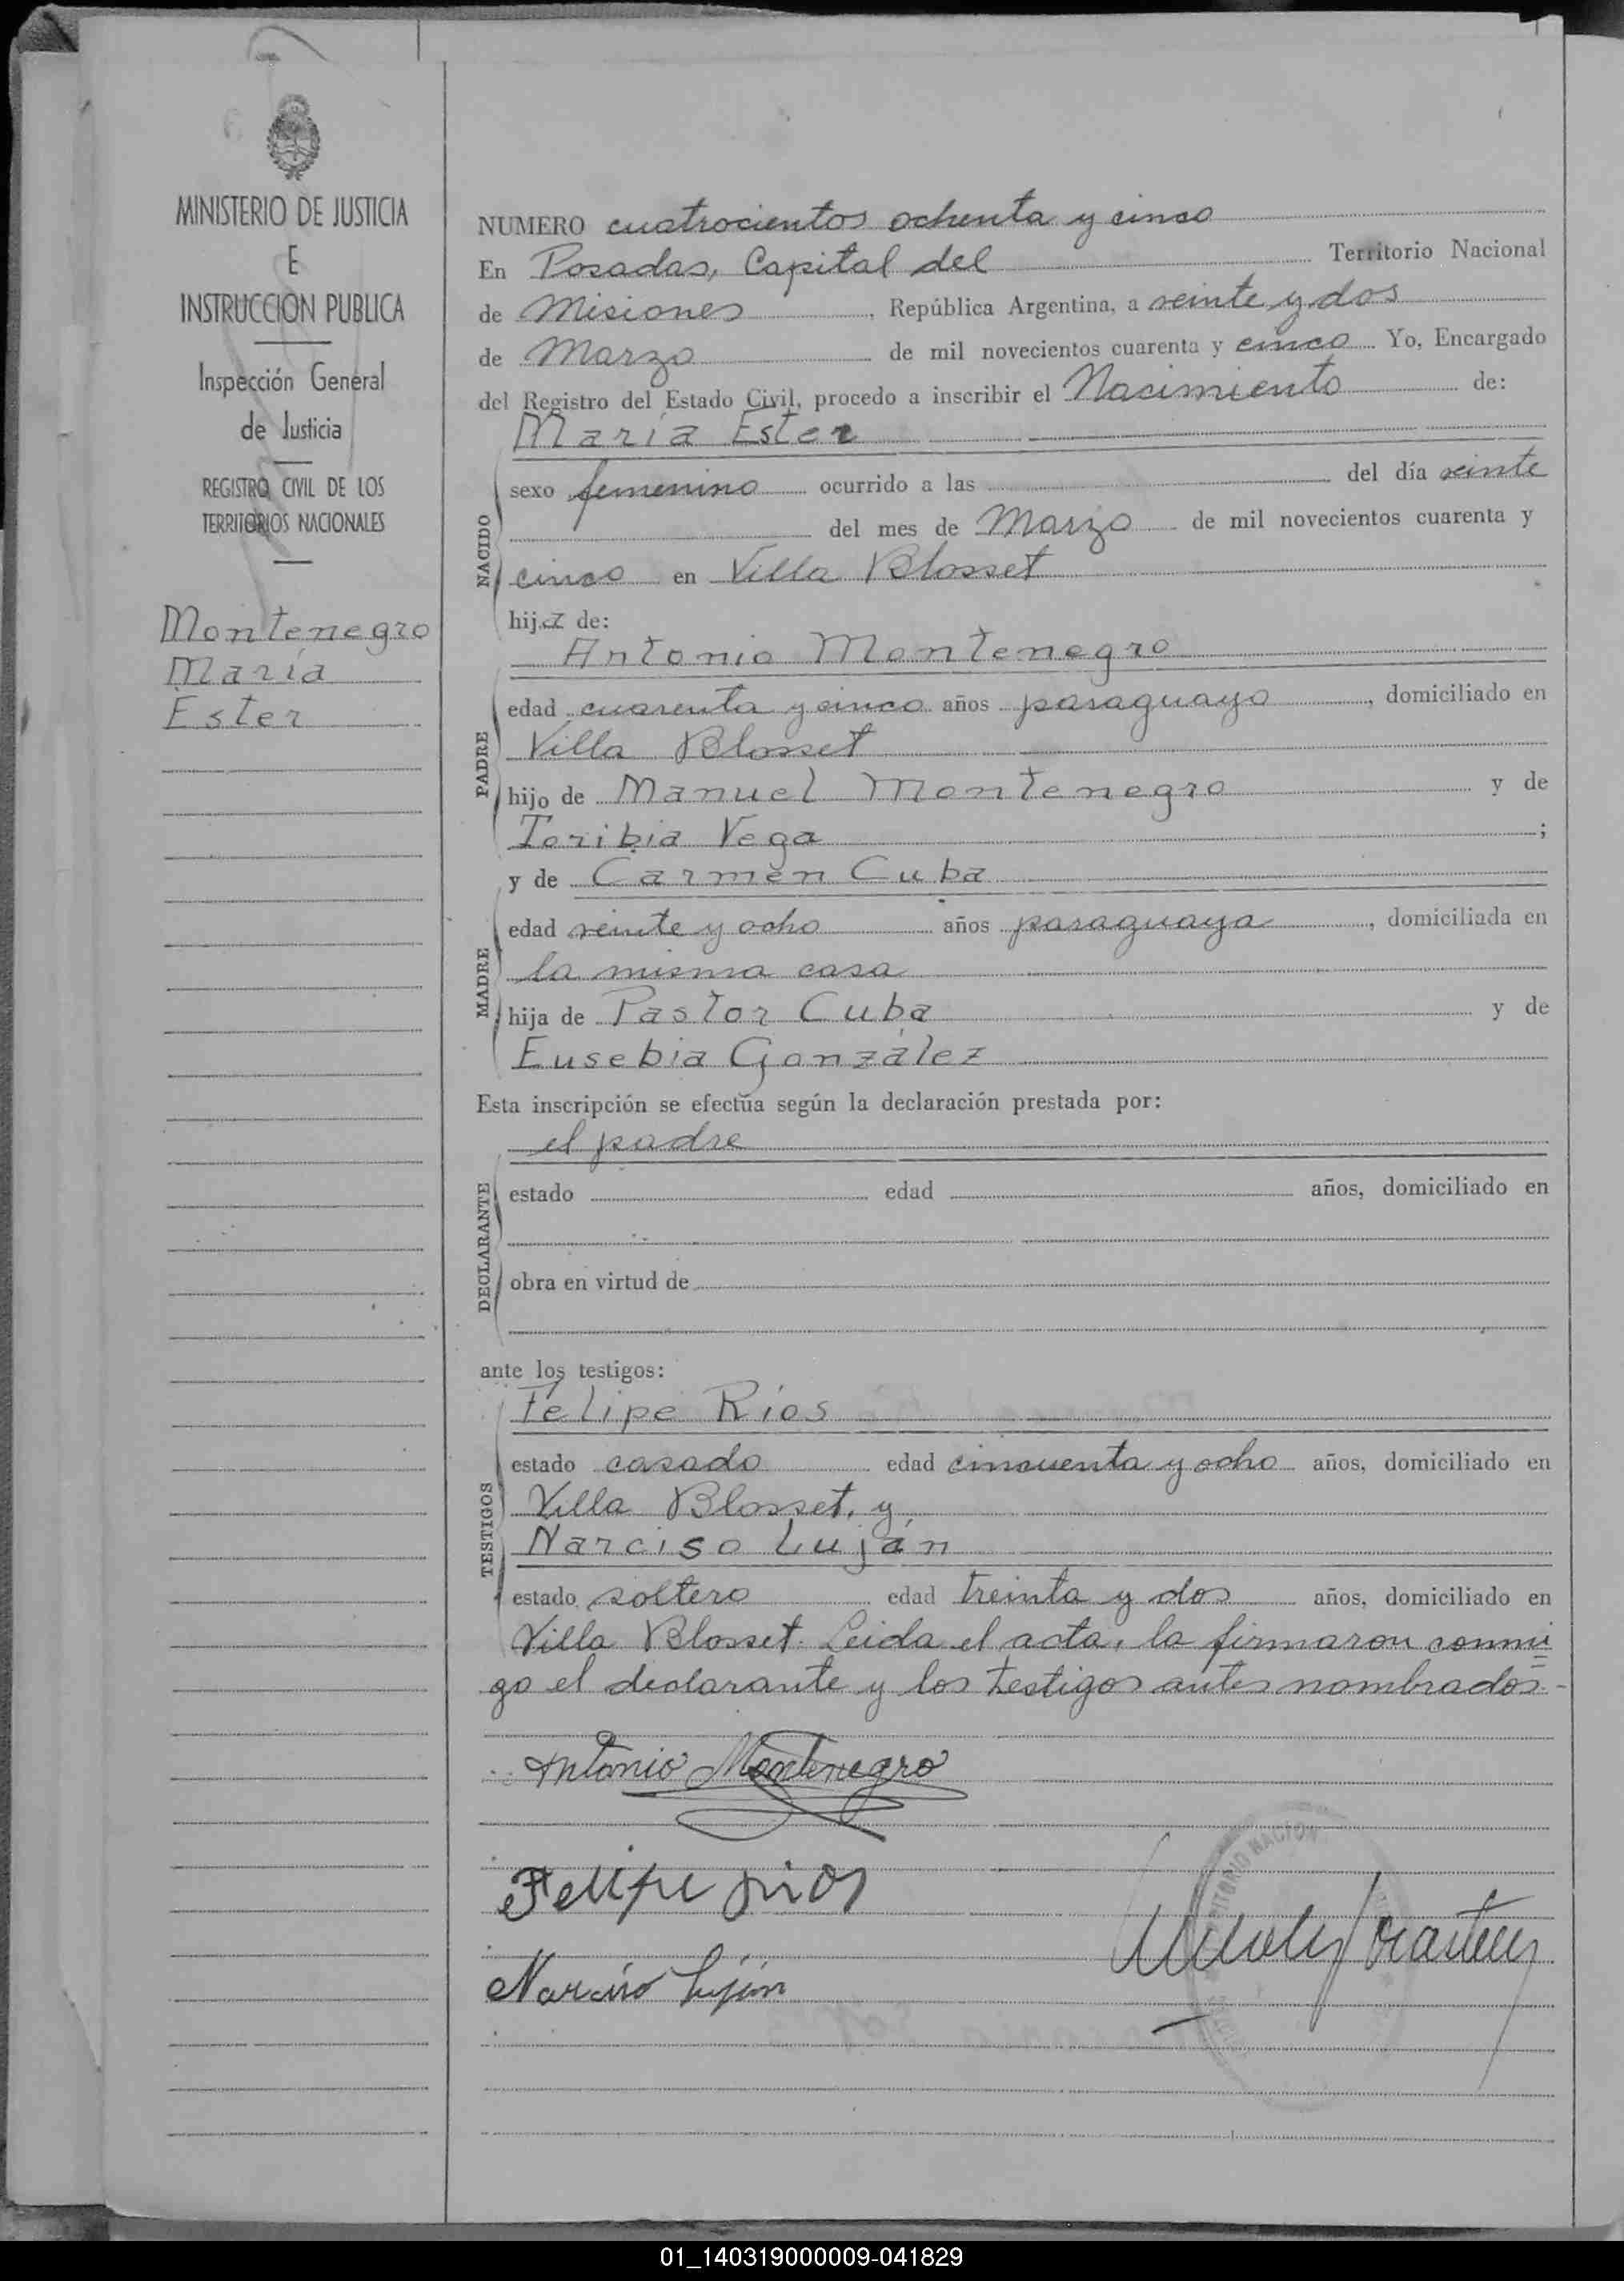 MINISTERIO DE JUSTICIA
E
INSTRUCCION PUBLICA
Inspección General
de Justicia
REGISTRO CIVIL DE LOS
TERRITORIOS NACIONALES
Montenegro
María
Ester
NUMERO cuatrocientos ochenta y cinco
En Posadas, Capital del Territorio Nacional
de Misiones, República Argentina, a veinte y dos
de Marzo de mil novecientos cuarenta y cinco. Yo, Encargado
del Registro del Estado Civil, procedo a inscribir el Nacimiento de:
María Ester
NACIDO
sexo femenino ocurrido a las del día veinte
del mes de Marzo de mil novecientos cuarenta y
cinco en Villa Blosset
hija de:
Antonio Montenegro
PADRE
edad cuarenta y cinco años paraguayo, domiciliado en
Villa Blosset
hijo de Manuel Montenegro y de
Toribia Vega;
y de Carmen Cuba
MADRE
edad veinte y ocho años paraguaya, domiciliada en
la misma casa
hija de Pastor Cuba y de
Eusebia González
Esta inscripción se efectúa según la declaración prestada por:
el padre
DECLARANTE
estado edad años, domiciliado en
obra en virtud de
ante los testigos:
Felipe Ríos
TESTIGOS
estado casado edad cincuenta y ocho años, domiciliado en
Villa Blosset, y
Narciso Luján
estado soltero edad treinta y dos años, domiciliado en
Villa Blosset. Leida el acta, la firmaron conmi
go el declarante y los testigos antes nombrados.-
Antonio Montenegro
Felipe rios
Narciso Luján
01_140319000009-041829